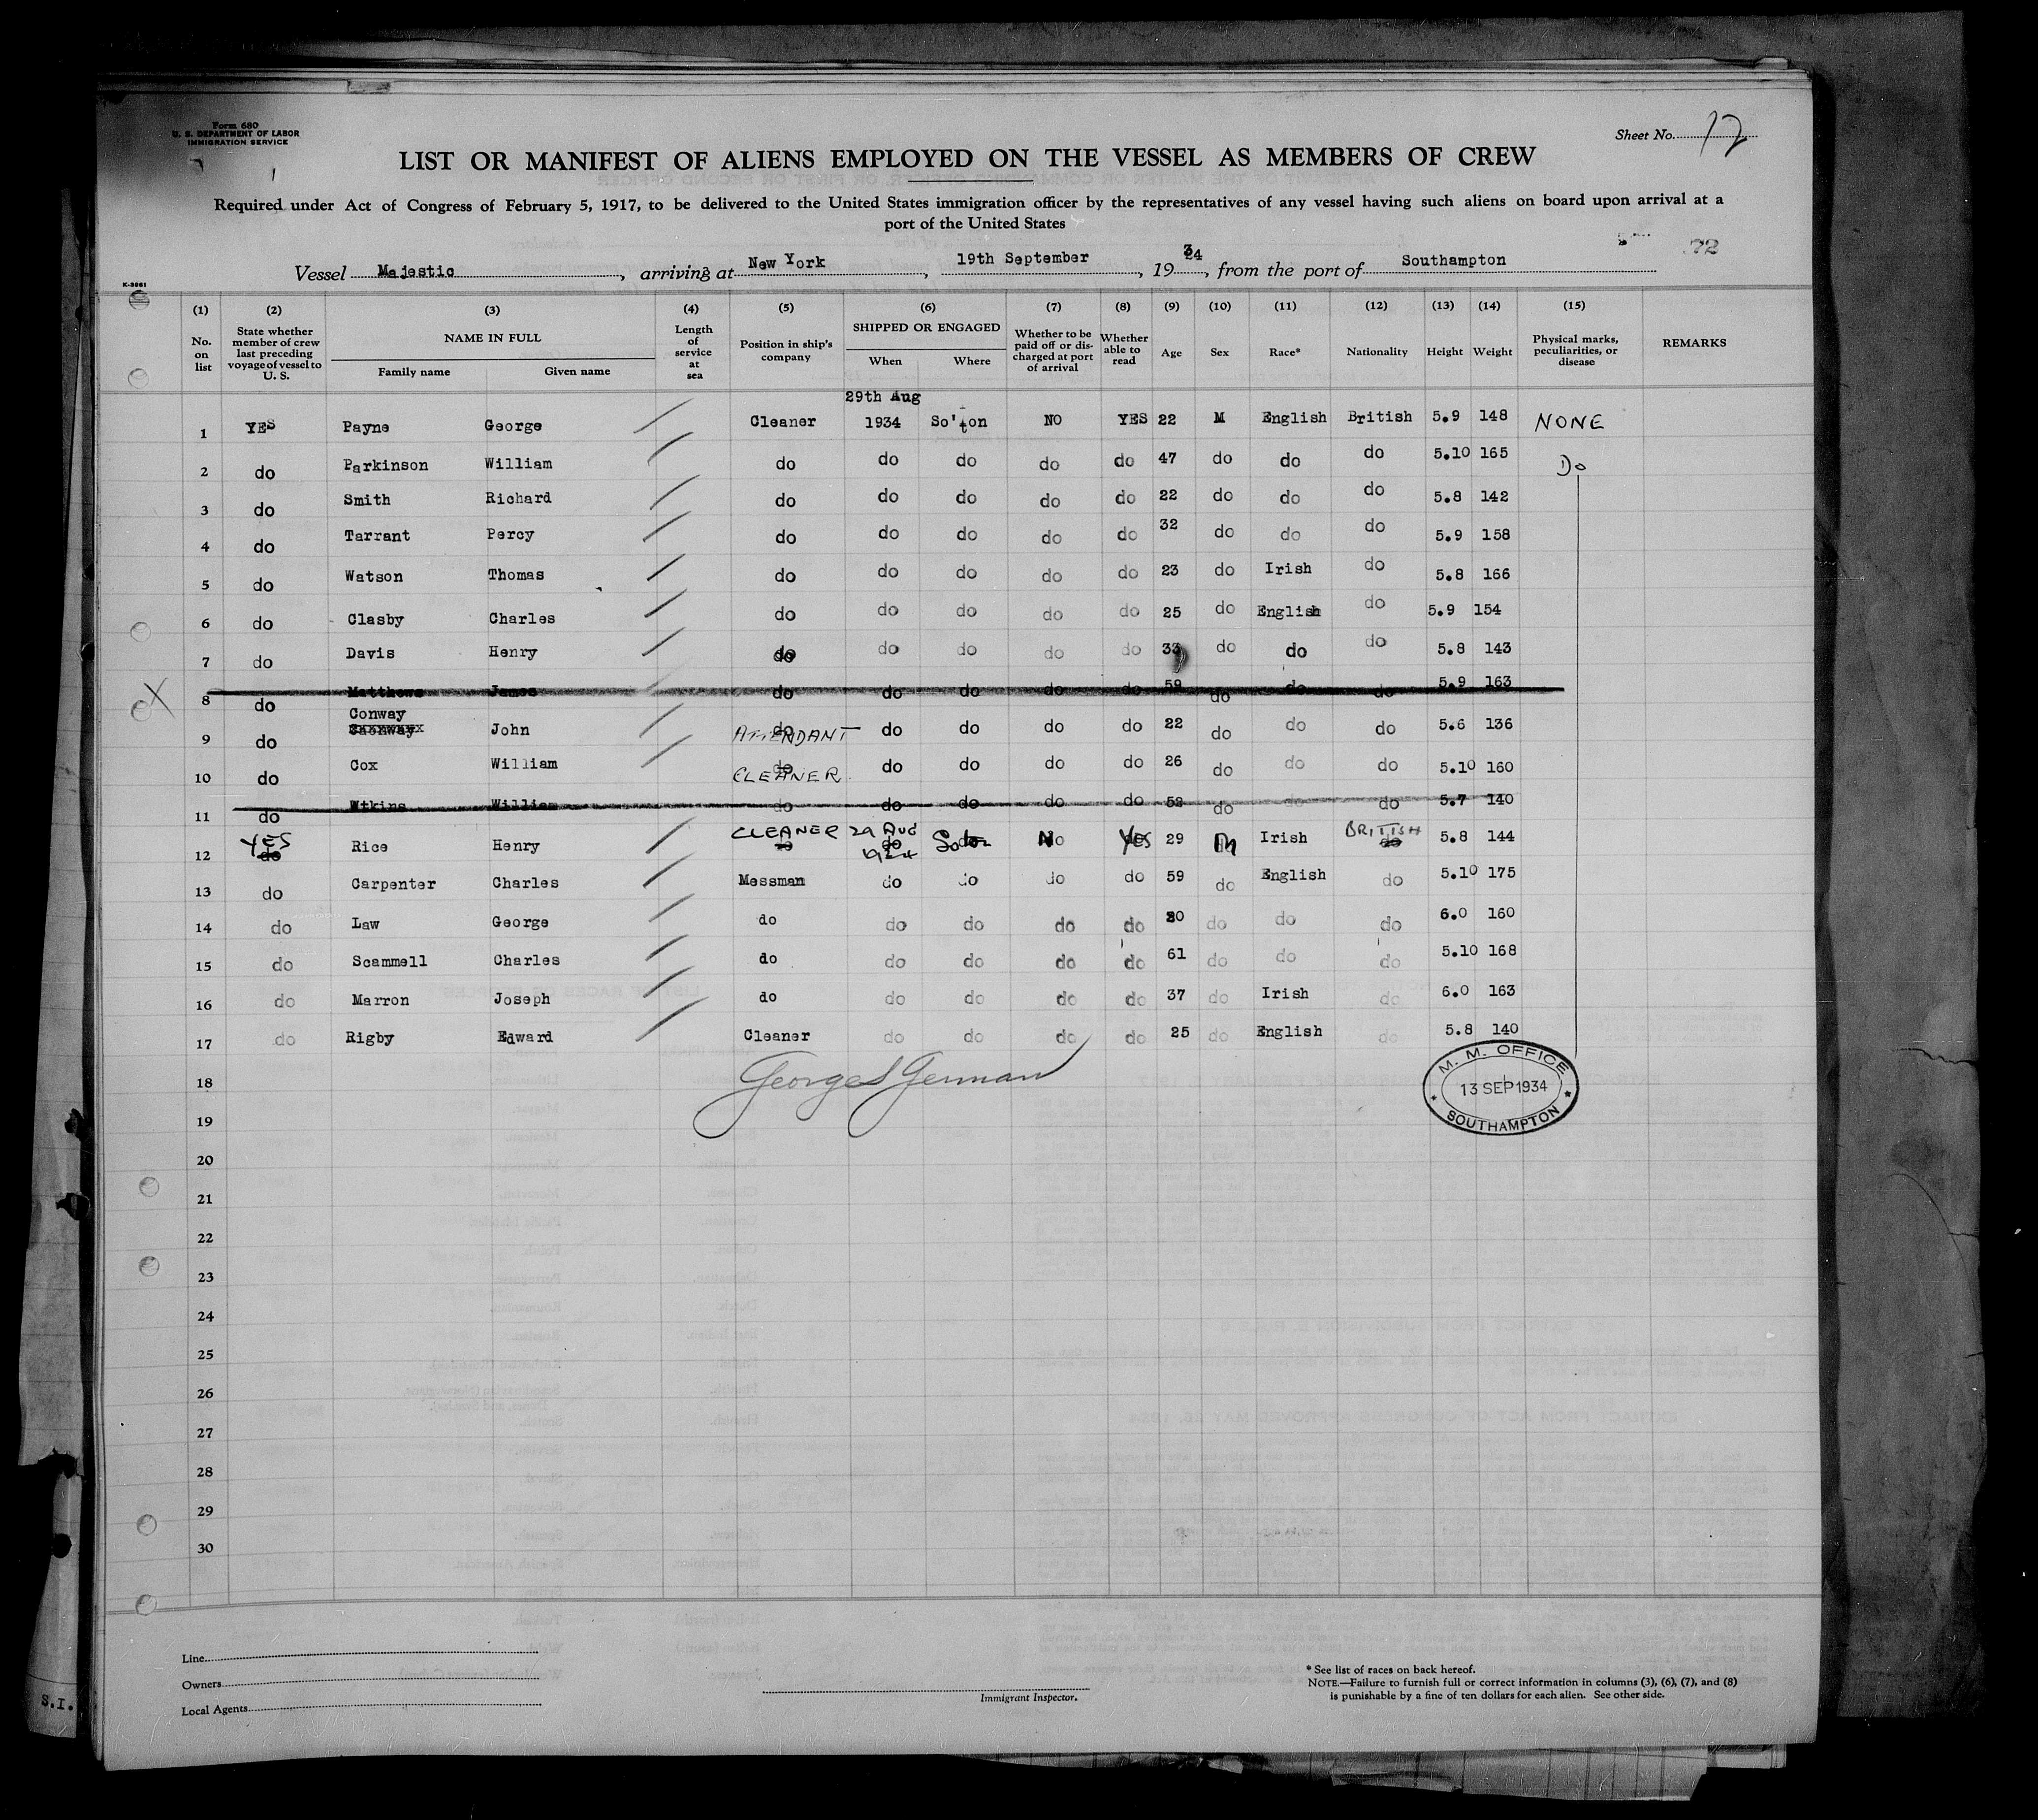 Form 680
U. S. DEPARTMENT OF LABOR
IMMIGRATION SERVICE
Sheet No. 12
LIST OR MANIFEST OF ALIENS EMPLOYED ON THE VESSEL AS MEMBERS OF CREW
Required under Act of Congress of February 5, 1917, to be delivered to the United States immigration officer by the representatives of any vessel having such aliens on board upon arrival at a
port of the United States
72
Vessel Majestic, arriving at New York, 19th September, 1934, from the port of Southampton
K-3961
(1) (2) (3) (4) (5) (6) (7) (8) (9) (10) (11) (12) (13) (14) (15)
No. on list State whether member of crew last preceding voyage of vessel to U. S. NAME IN FULL Family name Given name Length of service at sea Position in ship's company SHIPPED OR ENGAGED When Where Whether to be paid off or discharged at port of arrival Whether able to read Age Sex Race* Nationality Height Weight Physical marks, peculiarities, or disease REMARKS
1 YES Payne George Cleaner 29th Aug 1934 So'ton NO YES 22 M English British 5.9 148 NONE
2 do Parkinson William do do do do do 47 do do do 5.10 165 Do
3 do Smith Richard do do do do do 22 do do do 5.8 142
4 do Tarrant Percy do do do do do 32 do do do 5.9 158
5 do Watson Thomas do do do do do 23 do Irish do 5.8 166
6 do Clasby Charles do do do do do 25 do English do 5.9 154
7 do Davis Henry do do do do do 33 do do do 5.8 143
8 do Matthews James do do do do do 59 do do do 5.9 163
9 do Conway John do ATTENDANT do do do do 22 do do do 5.6 136
10 do Cox William do CLEANER do do do do 26 do do do 5.10 160
11 do Atkins William do do do do do 52 do do do 5.7 140
12 YES do Rice Henry CLEANER do 29 AUG 1934 Soton No YES 29 M Irish BRITISH do 5.8 144
13 do Carpenter Charles Messman do do do do 59 do English do 5.10 175
14 do Law George do do do do do 20 do do do 6.0 160
15 do Scammell Charles do do do do do 61 do do do 5.10 168
16 do Marron Joseph do do do do do 37 do Irish do 6.0 163
17 do Rigby Edward Cleaner do do do do 25 do English do 5.8 140
George S German
M. M. OFFICE
13 SEP 1934
SOUTHAMPTON
18
19
20
21
22
23
24
25
26
27
28
29
30
Line
Owners
Local Agents
Immigrant Inspector.
* See list of races on back hereof.
NOTE.—Failure to furnish full or correct information in columns (3), (6), (7), and (8)
is punishable by a fine of ten dollars for each alien. See other side.
S.I.